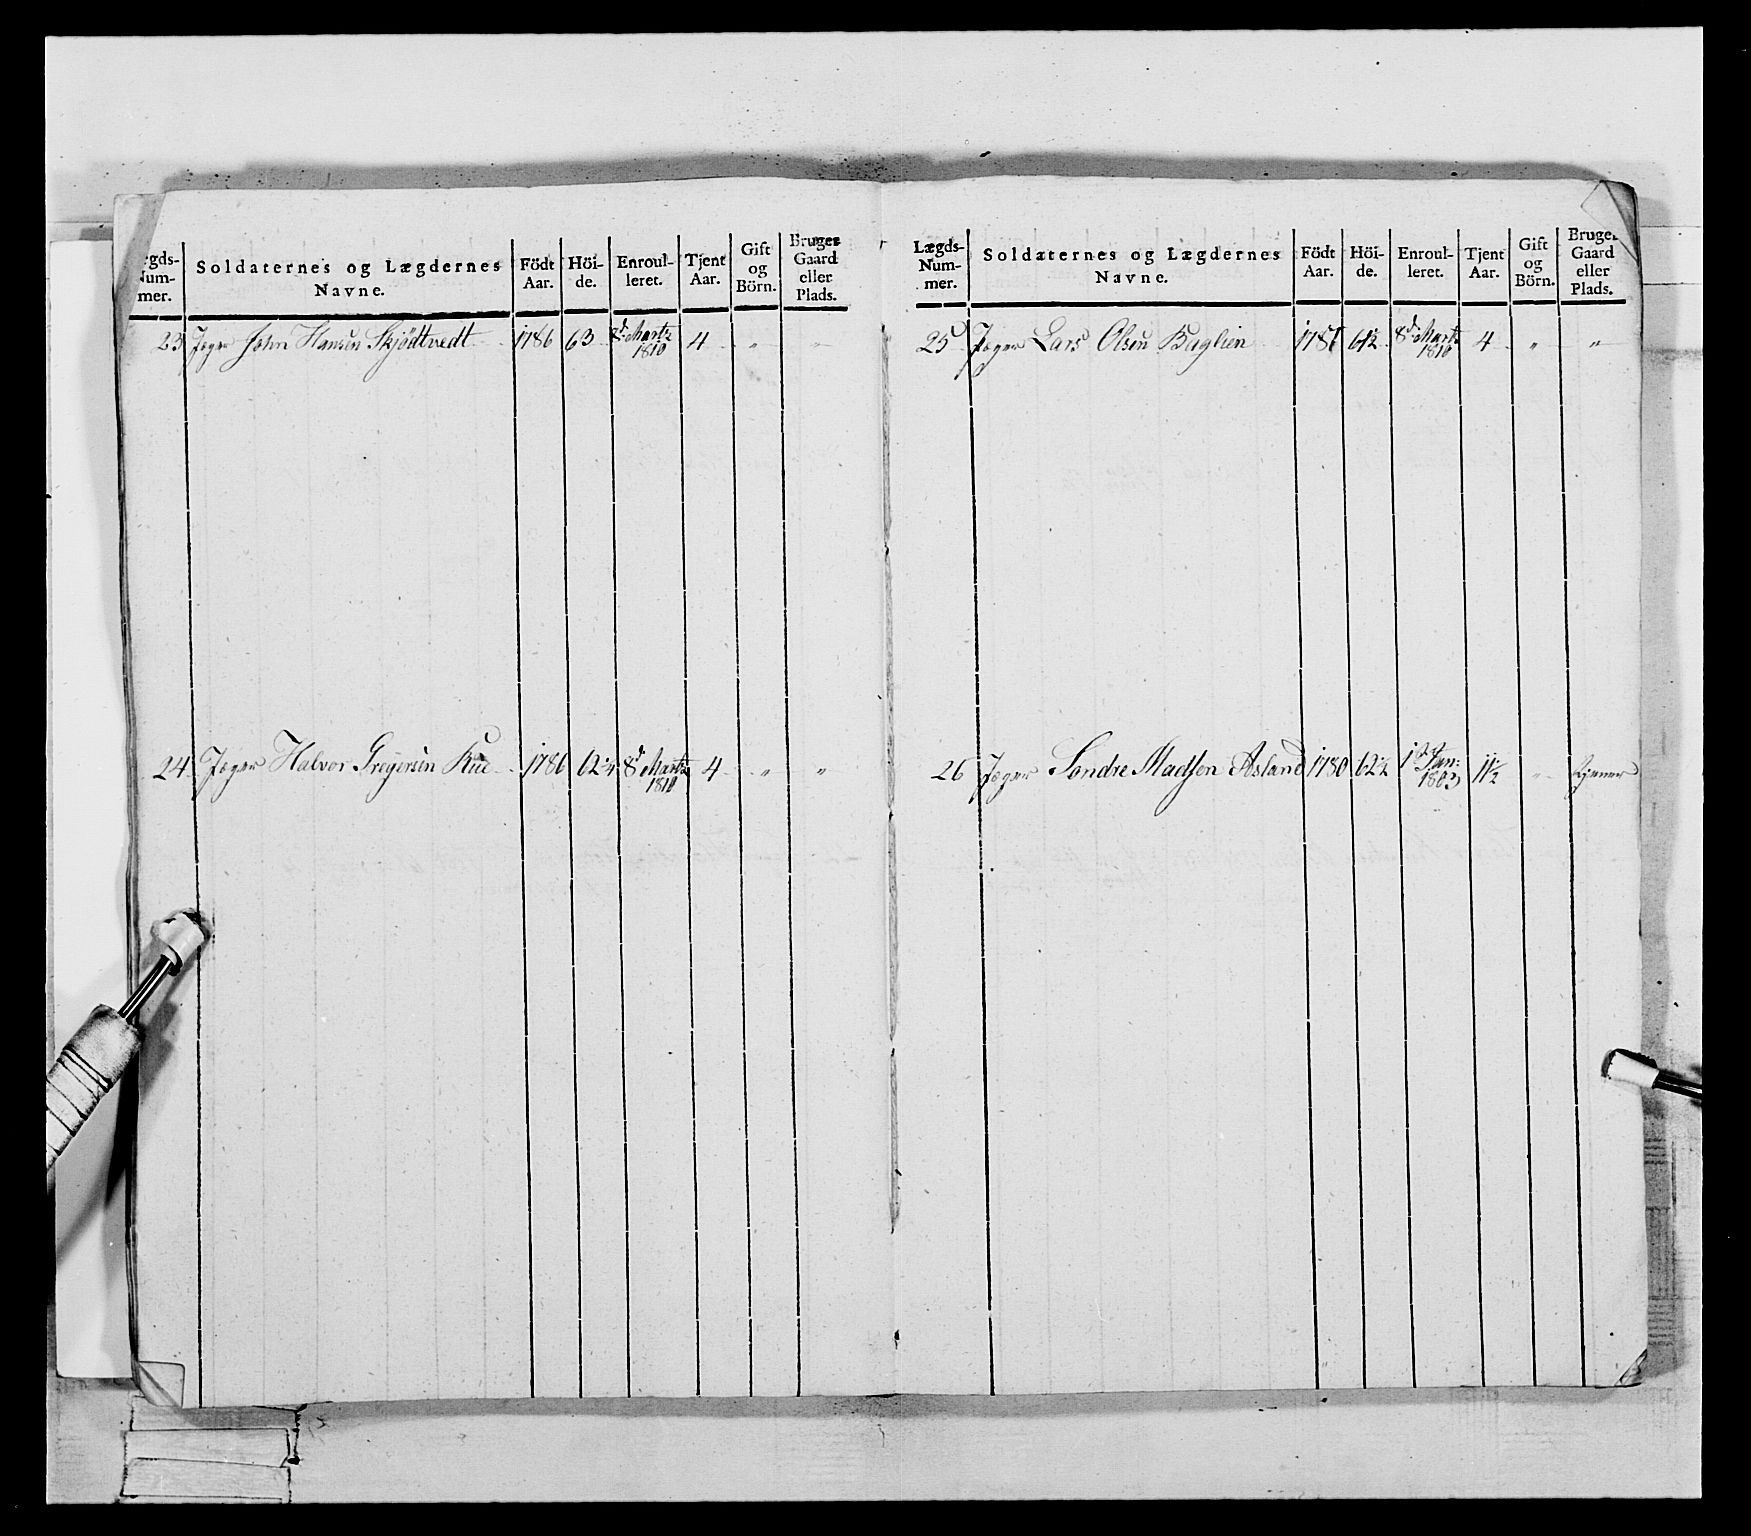 Lægds- Num- mer. Soldaternes og Lægdernes Navne. Födt Aar. Höi- de. Enroul- leret. Tjent Aar. Gift og Börn. Bruger Gaard eller Plads.
23 Jæger John Hansen Skjödtvedt 1786 63 8d Martz 1810 4 " "
24 Jæger Halvor Gregersen Rue 1786 62 8d Martz 1810 4 " "
Lægds- Num- mer. Soldaternes og Lægdernes Navne. Födt Aar. Höi- de. Enroul- leret. Tjent Aar. Gift og Börn. Bruger Gaard eller Plads.
25 Jæger Lars Olsen Baglien 61½ 8d Martz 1810 4 " "
26 Jæger Söndre Madsen Asland 1780 62½ 1 Jan: 1803 11½ " tjener